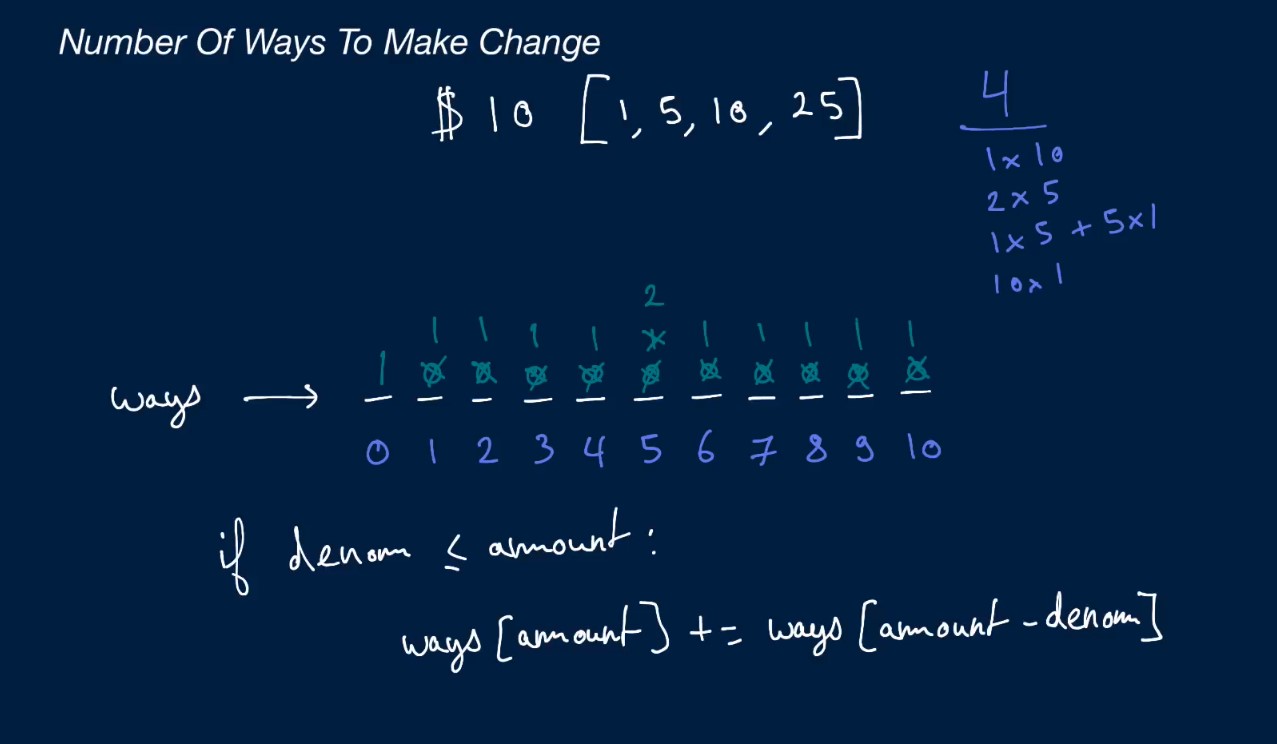 Number Of Ways To Make Change
$ 10 [1, 5, 10, 25]
4
1x 10
2 x 5
1x 5 + 5x1
10x 1
2
1 1 1 1 x 1 1 1 1 1
1 0 0 0 0 0 0 0 0 0 0
ways →
0 1 2 3 4 5 6 7 8 9 10
if denom ≤ amount:
ways [amount] += ways [amount - denom]